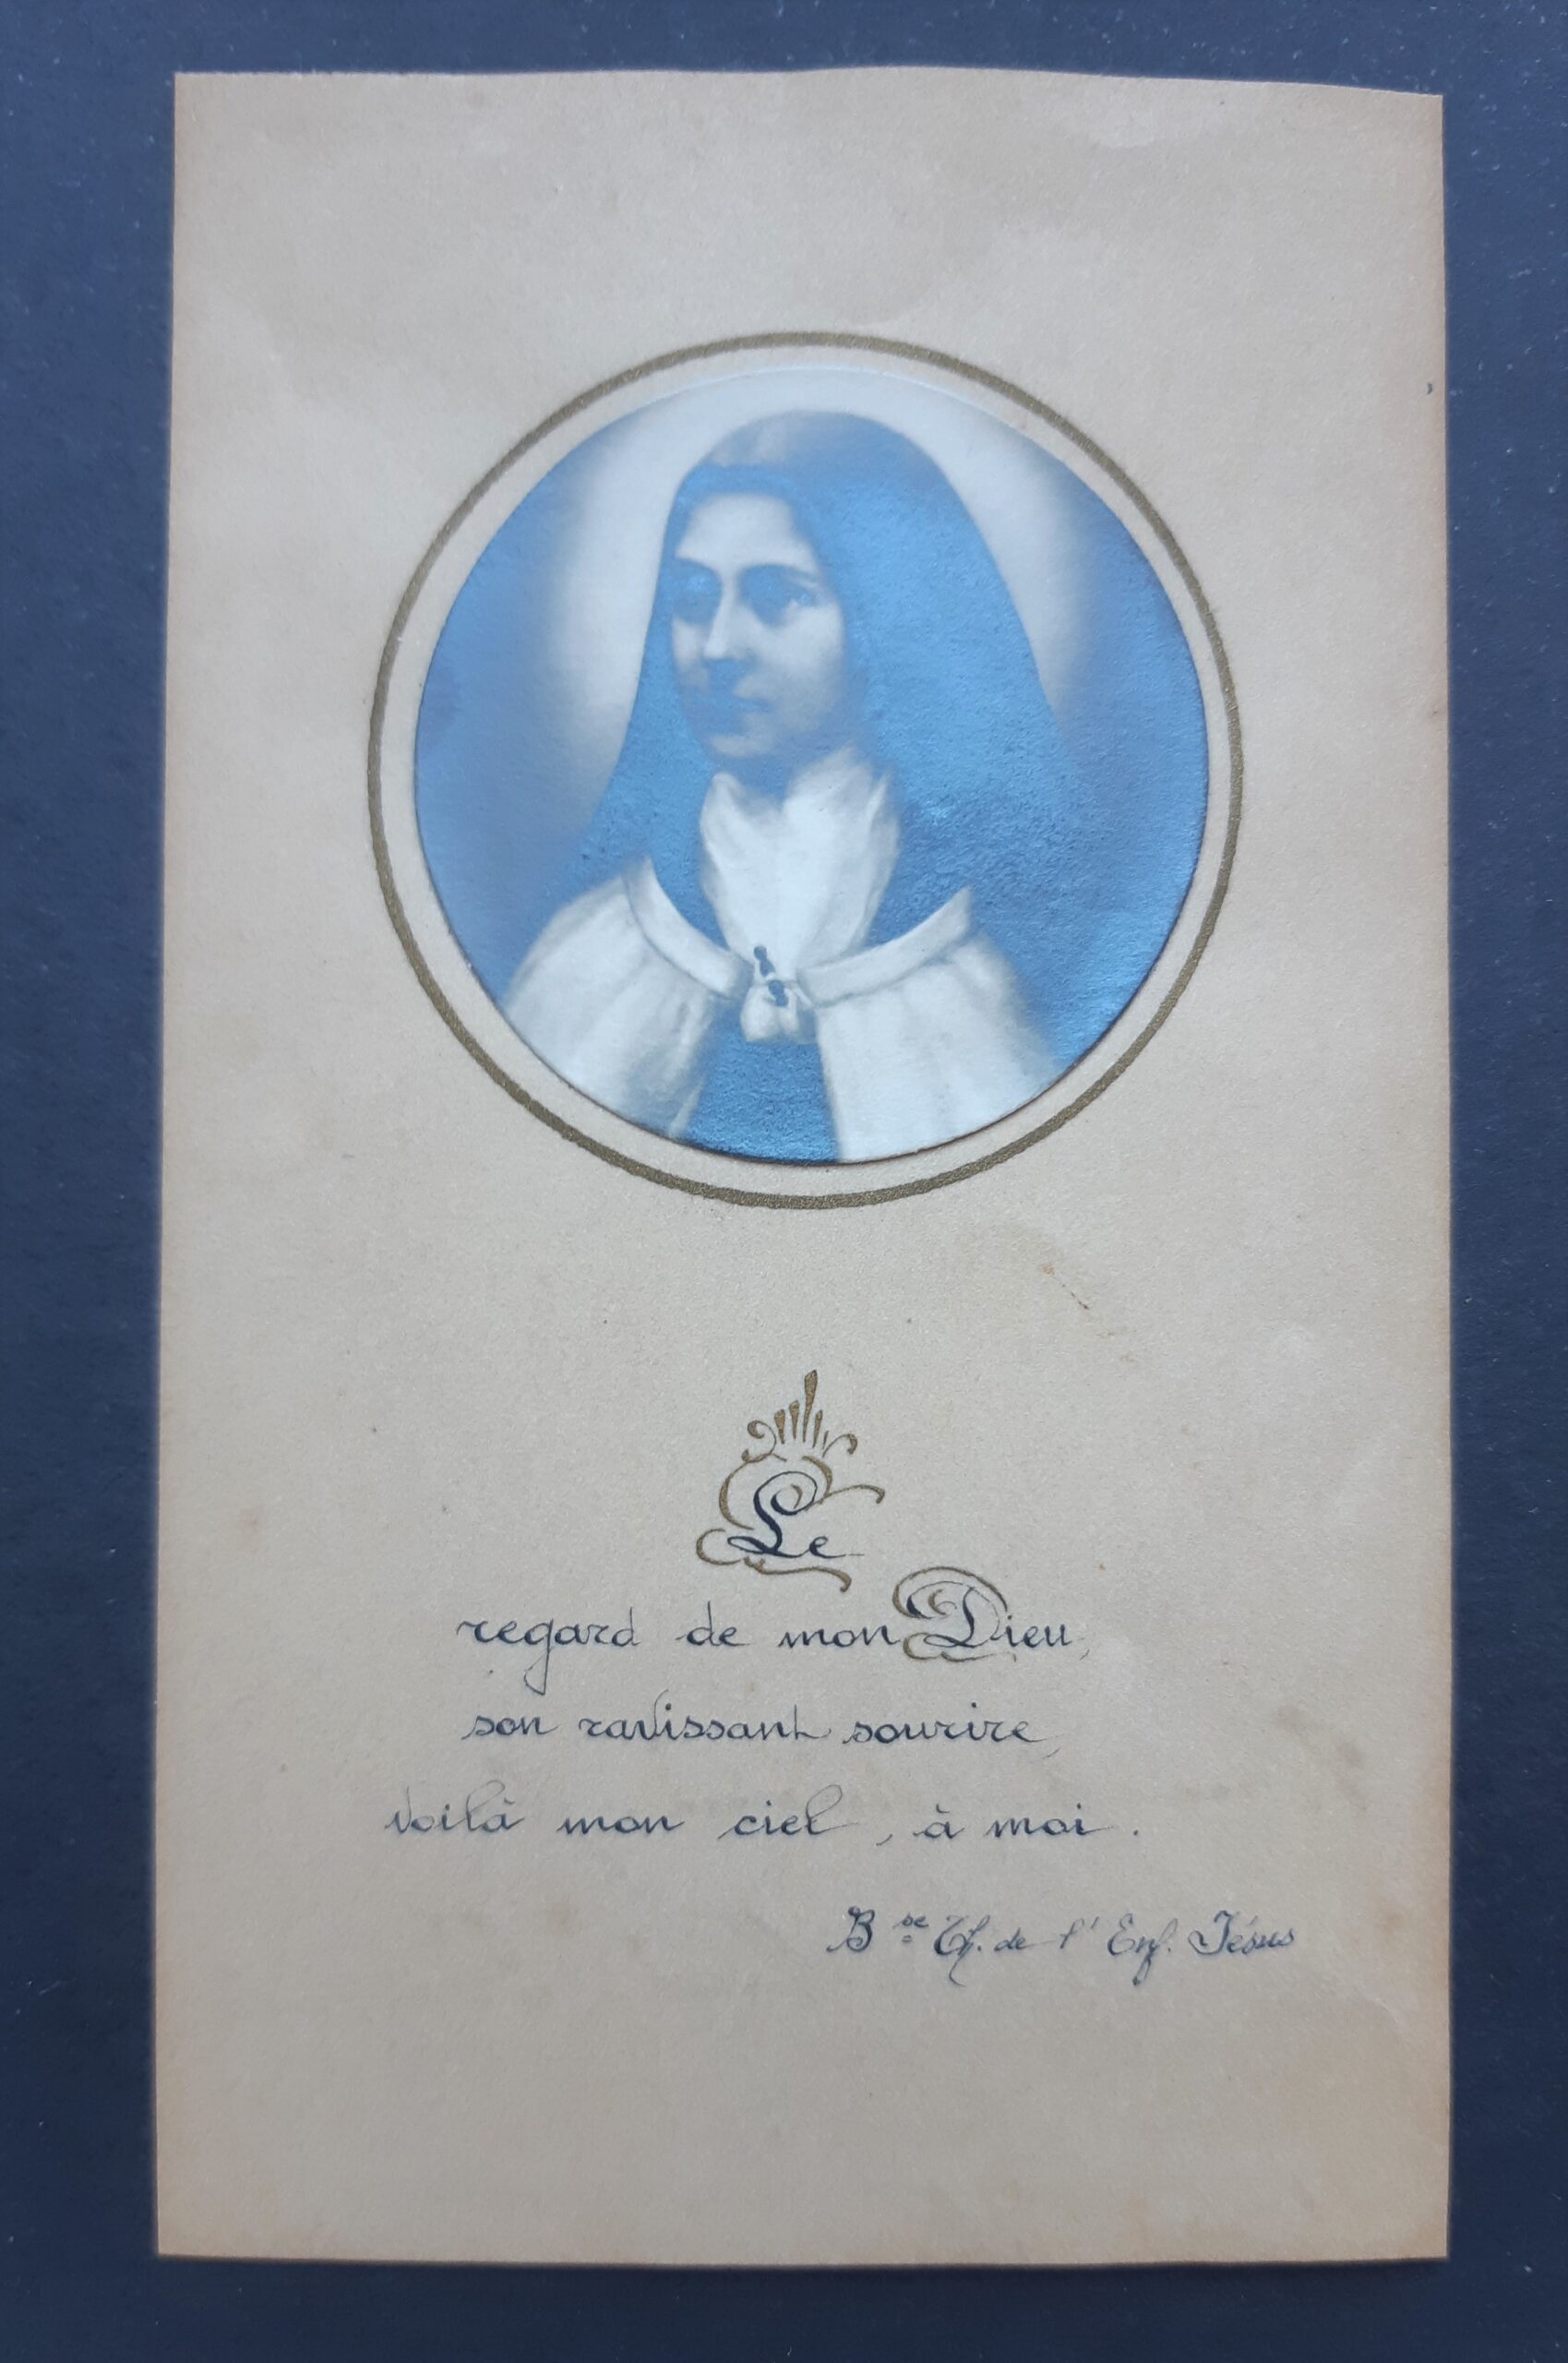 Le
regard de mon Dieu,
son ravissant sourire,
voilà mon ciel, à moi.
Bse Th. de l'Enf. Jésus